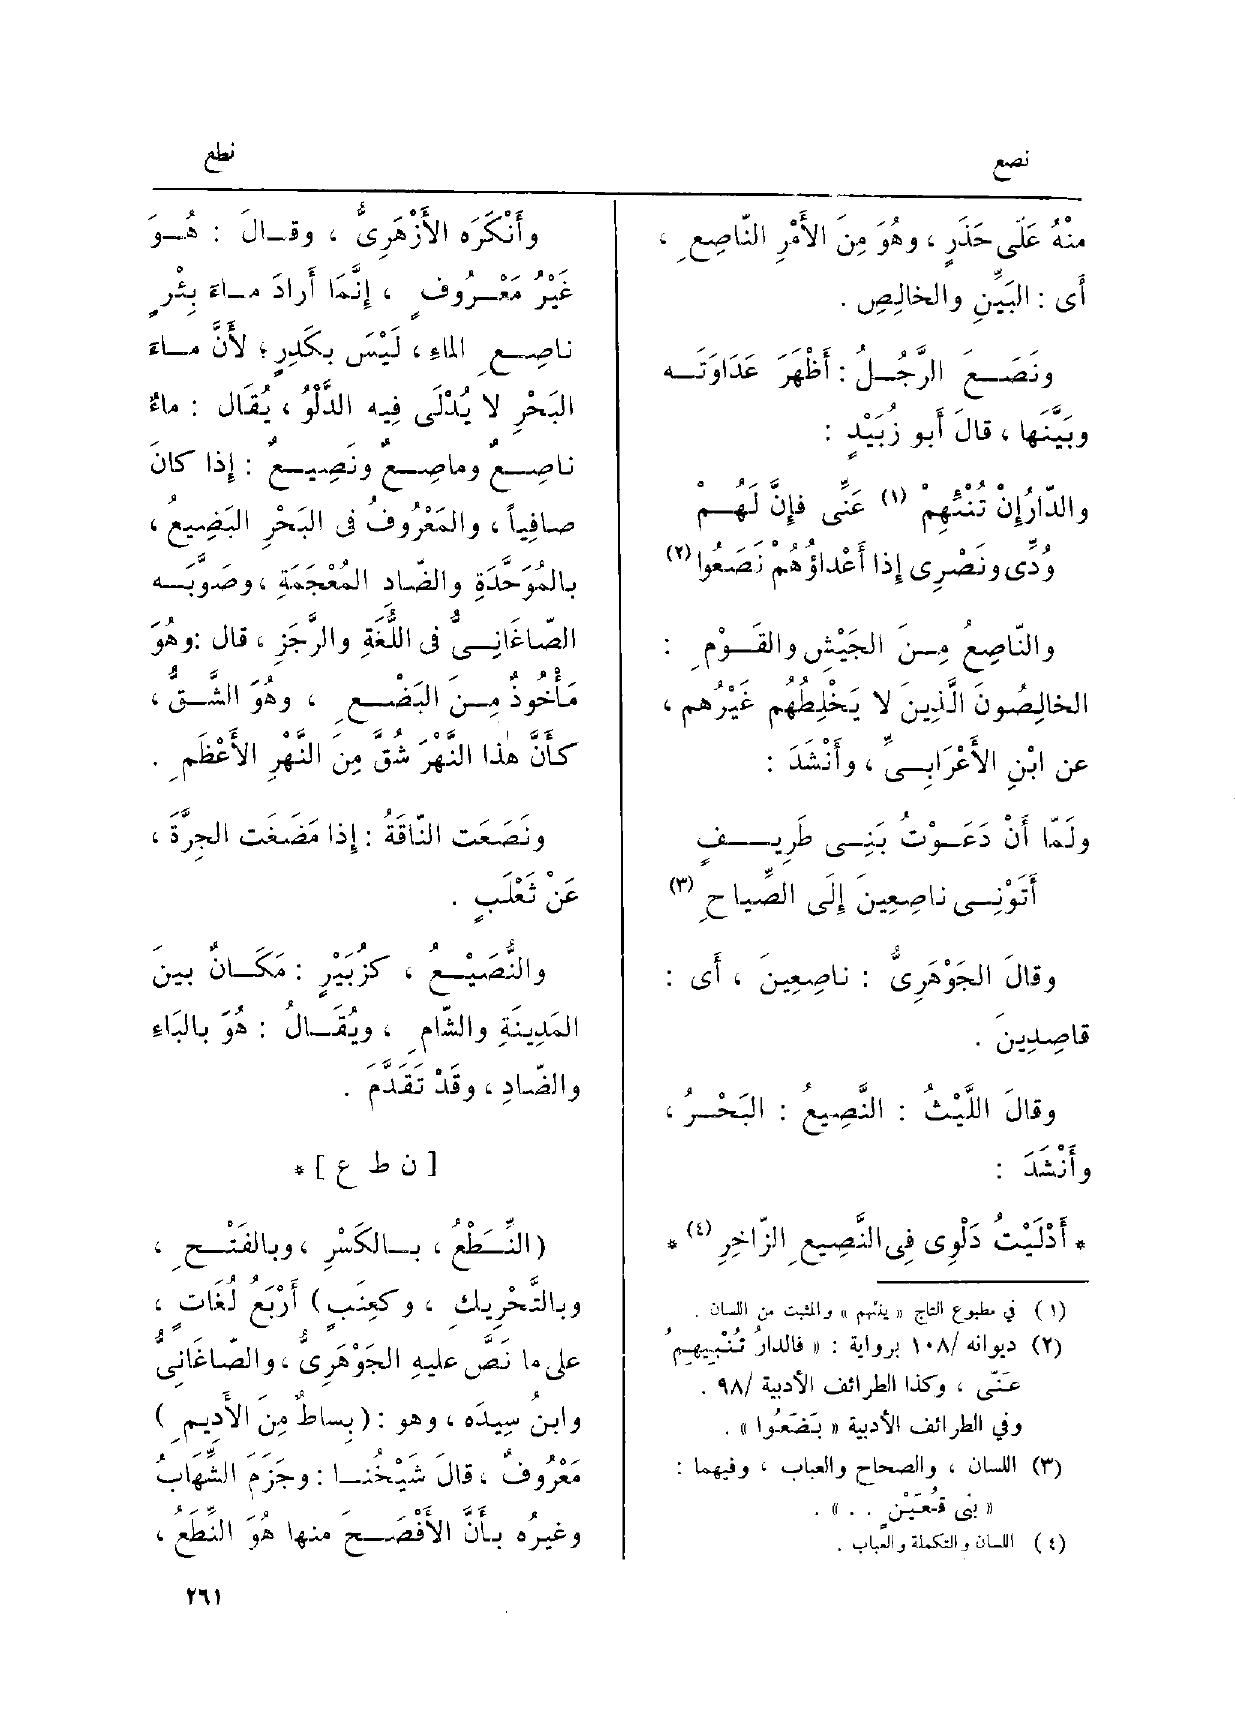 نصع
نطع
منْهُ عَلَى حَذَرٍ ، وهُوَ مِنَ الأَمْرِ النّاصِعِ ،
أى : البَيِّنِ والخالِصِ .
ونَصَعَ الرَّجُلُ : أَظْهَرَ عَدَاوَتَه
وبَيَّنَها ، قالَ أَبو زُبَيْدٍ :
والدّارُ إنْ تُنْئِهِمْ (١) عَنِّى فإنَّ لَهُمْ
وُدِّى ونَصْرِى إذا أَعْداؤُهُمْ نَصَعُوا (٢)
والنّاصِعُ مِنَ الجَيْشِ والقَوْمِ :
الخالِصُونَ الَّذِينَ لا يَخْلِطُهم غَيْرُهم ،
عن ابْنِ الأَعْرَابِىِّ ، وأَنْشَدَ :
ولَمّا أَنْ دَعَوْتُ بَنِى طَرِيفٍ
أَتَوْنِى ناصِعِينَ إلَى الصِّياحِ (٣)
وقالَ الجَوْهَرِىُّ : ناصِعِينَ ، أى :
قاصِدِينَ .
وقالَ اللَّيْثُ : النَّصِيعُ : البَحْرُ ،
وأَنْشَدَ :
* أَدْلَيْتُ دَلْوِى فِى النَّصِيعِ الزّاخِرِ (٤) *
(١) في مطبوع التاج « ينئهم » والمثبت من اللسان .
(٢) ديوانه /١٠٨ برواية : « فالدارُ تُنْبِيهِمُ
عَنّى ، وكذا الطرائف الأدبية /٩٨ .
وفي الطرائف الأدبية « بَضَعُوا » .
(٣) اللسان ، والصحاح والعباب ، وفيهما :
« بنى قُعَيْنٍ . . » .
(٤) اللسان والتكملة والعباب .
وأَنْكَرَه الأَزْهَرِىُّ ، وقالَ : هُوَ
غَيْرُ مَعْرُوفٍ ، إنَّمَا أَرادَ ماءَ بِئْرٍ
ناصِعِ الماءِ ، لَيْسَ بكَدِرٍ ؛ لأَنَّ ماءَ
البَحْرِ لا يُدْلَى فِيه الدَّلْوُ ، يُقَال : ماءٌ
ناصِعٌ وماصِعٌ ونَصِيعٌ : إذا كانَ
صافِياً ، والمَعْرُوفُ فى البَحْرِ البَضِيعُ ،
بالمُوَحَّدَةِ والضّاد المُعْجَمَةِ ، وصَوَّبَه
الصّاغَانِىُّ فى اللُّغَةِ والرَّجَزِ ، قال : وهُوَ
مَأْخُوذٌ مِنَ البَضْعِ ، وهُوَ الشَّقُّ ،
كأَنَّ هٰذا النَّهْرَ شُقَّ مِنَ النَّهْرِ الأَعْظَمِ .
ونَصَعَت النّاقَةُ : إذا مَضَغَت الجِرَّةَ ،
عَنْ ثَعْلَبٍ .
والنُّصَيْعُ ، كزُبَيْرٍ : مَكَانٌ بينَ
المَدِينَةِ والشّامِ ، ويُقَالُ : هُوَ بالبَاءِ
والضّادِ ، وقَدْ تَقَدَّمَ .
[ ن ط ع ] *
(النِّطْعُ ، بالكَسْرِ ، وبالفَتْحِ ،
وبالتَّحْرِيكِ ، وكعِنَبٍ) أَرْبَعُ لُغَاتٍ ،
على ما نَصَّ عليهِ الجَوْهَرِىُّ ، والصّاغانِىُّ
وابنُ سِيدَه ، وهو : (بِساطٌ مِنَ الأَدِيمِ )
مَعْرُوفٌ ، قالَ شَيْخُنا : وجَزَمَ الشِّهَابُ
وغيرُه بأَنَّ الأَفْصَحَ منها هُوَ النِّطَعُ ،
٢٦١